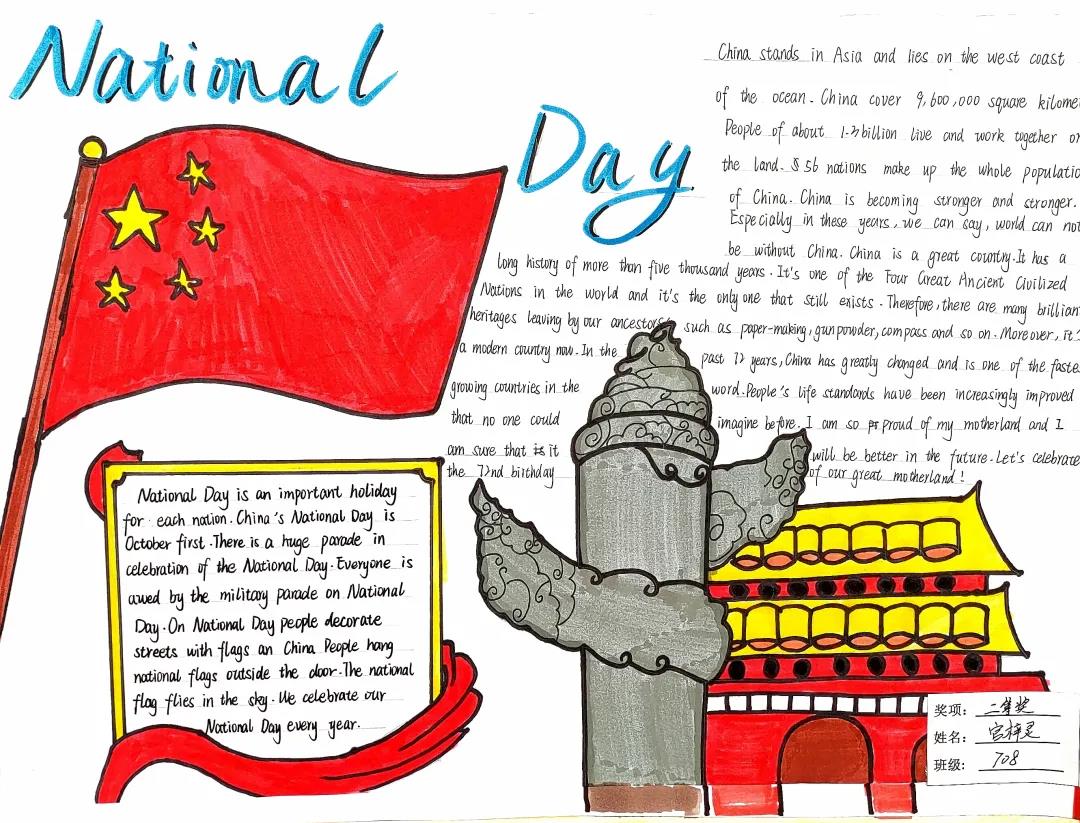 National
Day
China stands in Asia and lies on the west coast
of the ocean. China cover 9,600,000 square kilome
People of about 1.3 billion live and work together or
the land. 56 nations make up the whole populatio
of China. China is becoming stronger and stronger.
Especially in these years, we can say, world can not
be without China. China is a great country. It has a
long history of more than five thousand years. It's one of the Four Great Ancient Civilized
Nations in the world and it's the only one that still exists. Therefore, there are many brillian
heritages leaving by our ancestors such as paper-making, gunpowder, compass and so on. Moreover, it's
a modern country now. In the past 72 years, China has greatly changed and is one of the faste
growing countries in the word. People's life standards have been increasingly improved
that no one could imagine before. I am so proud of my motherland and I
am sure that it will be better in the future. Let's celebrate
the 72nd birthday of our great motherland!
National Day is an important holiday
for each nation. China's National Day is
October first. There is a huge parade in
celebration of the National Day. Everyone is
awed by the military parade on National
Day. On National Day people decorate
streets with flags an China People hang
national flags outside the door. The national
flag flies in the sky. We celebrate our
National Day every year.
奖项: 二等奖
姓名: 宫梓灵
班级: 708